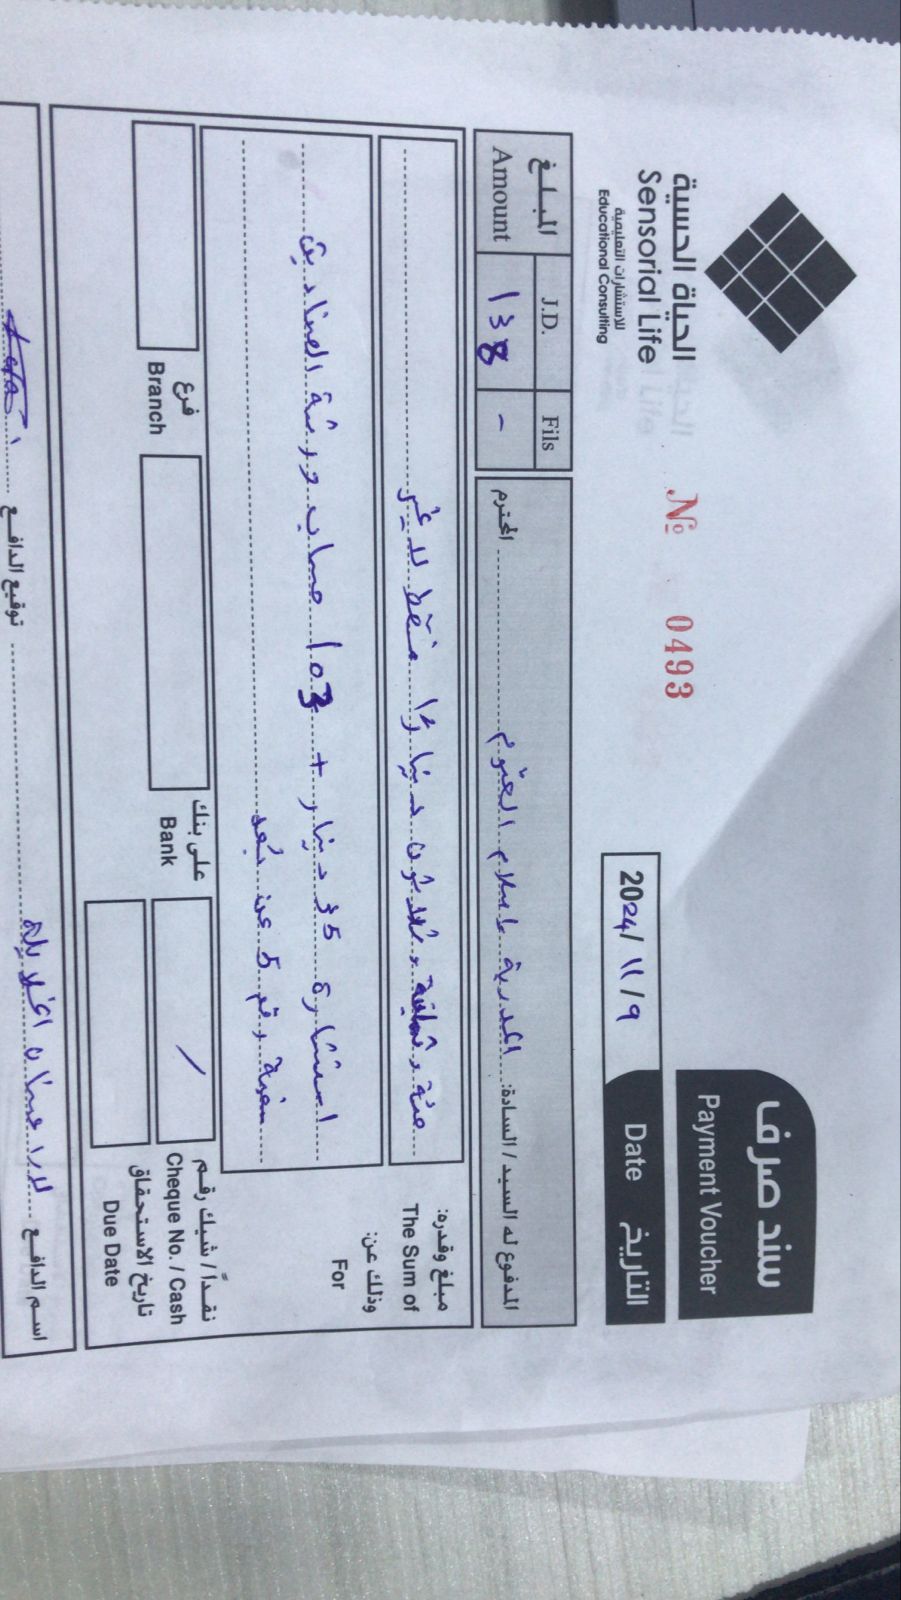 الحياة الحسية
Sensorial Life
للاستشارات التعليمية
Educational Consulting
№ 0493
سند صرف
Payment Voucher
2024/ ١١ / ٩
Date التاريخ
المبلغ
Amount
J.D. Fils
138 -
المدفوع له السيد / السادة: المدربة إسلام العتوم المحترم
مبلغ وقدره: مئة وثمانية وثلاثون دينارًا فقط لا غير
The Sum of
وذلك عن: استشارة 35 دينار + 103 حساب ورشة الصناديق
For
رقم 5 عن بُعد
نقداً / شيك رقم /
Cheque No. / Cash
على بنك
Bank
فرع
Branch
تاريخ الاستحقاق
Due Date
اسم الدافع لارا
توقيع الدافع